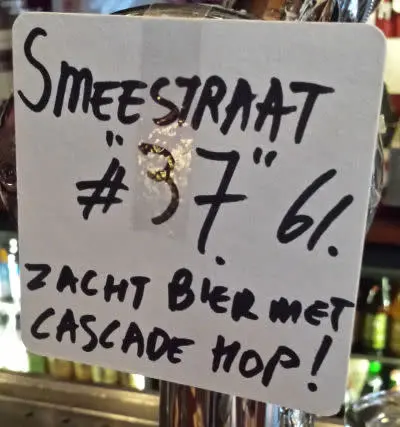 SMEESTRAAT
#"37." 6%.
ZACHT BIER MET
CASCADE HOP!